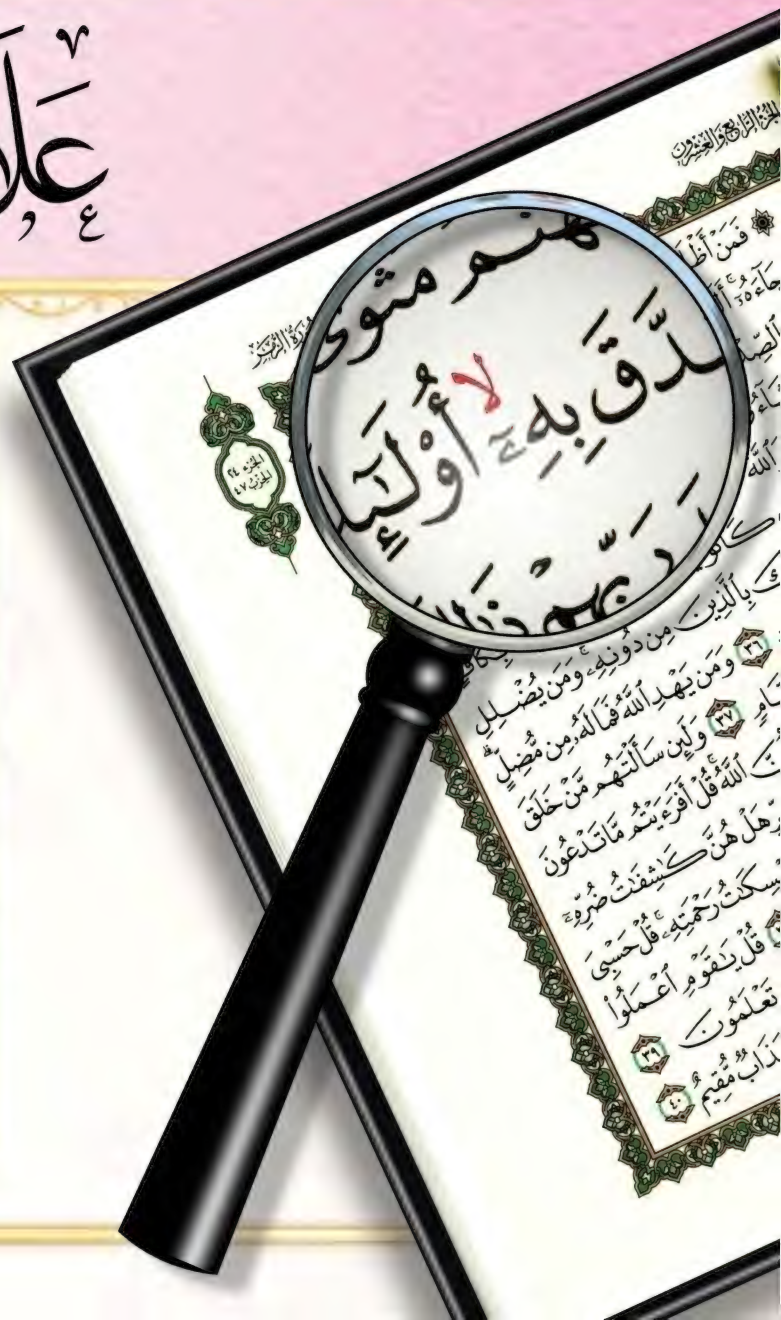 عَلَا
الجُزْءُ الرَّابِعُ وَالعِشْرُونَ
سُورَةُ الزُّمَرِ
۞ فَمَنْ أَظْ
جَآءَهُۥٓ
ٱللَّهُ
هنم مثوى
ـدَّقَ بِهِۦٓ لا أُوْلَٰٓئِ
رَبِّهِمْ ذَٰلِ
الجزء ٢٤
الحزب ٤٧
كَ بِٱلَّذِينَ مِن دُونِهِۦ ۚ وَمَن يُضْلِلِ
٣٦ وَمَن يَهْدِ ٱللَّهُ فَمَا لَهُۥ مِن مُّضِلٍّ ۗ
ـامٍ ٣٧ وَلَئِن سَأَلْتَهُم مَّنْ خَلَقَ
نَّ ٱللَّهُ ۚ قُلْ أَفَرَءَيْتُم مَّا تَدْعُونَ
هَلْ هُنَّ كَٰشِفَٰتُ ضُرِّهِۦٓ
ـمْسِكَٰتُ رَحْمَتِهِۦ ۚ قُلْ حَسْبِىَ
قُلْ يَٰقَوْمِ ٱعْمَلُوا۟
تَعْلَمُونَ ٣٩
ـذَابٌ مُّقِيمٌ ٤٠